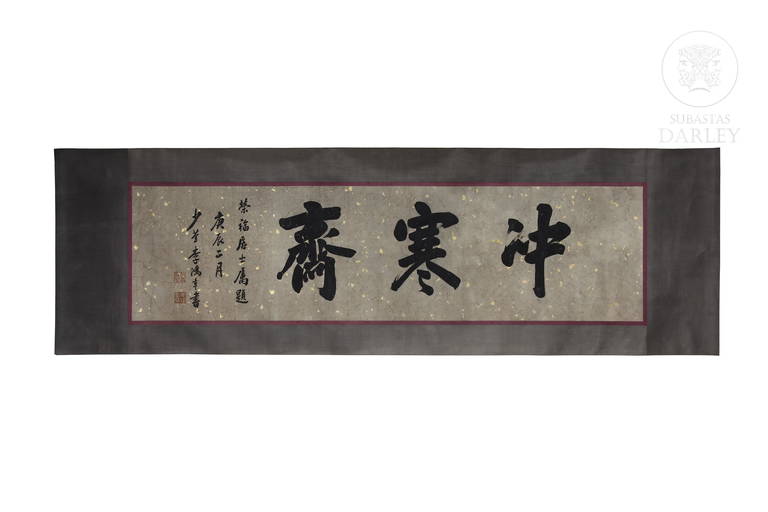 冲寒齋
榮福居士屬題
庚辰正月
少荃李鴻章書
SUBASTAS
DARLEY